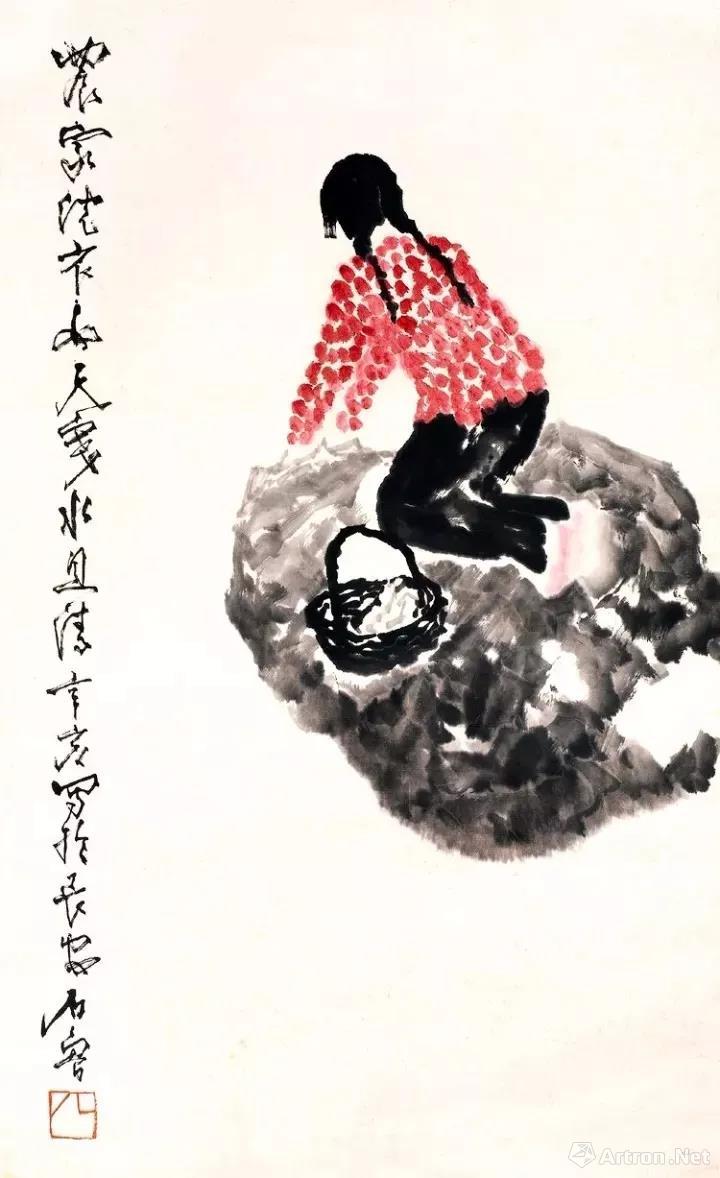 農家洗衣女天寒水且清辛亥寫於長安石魯
Artron.Net